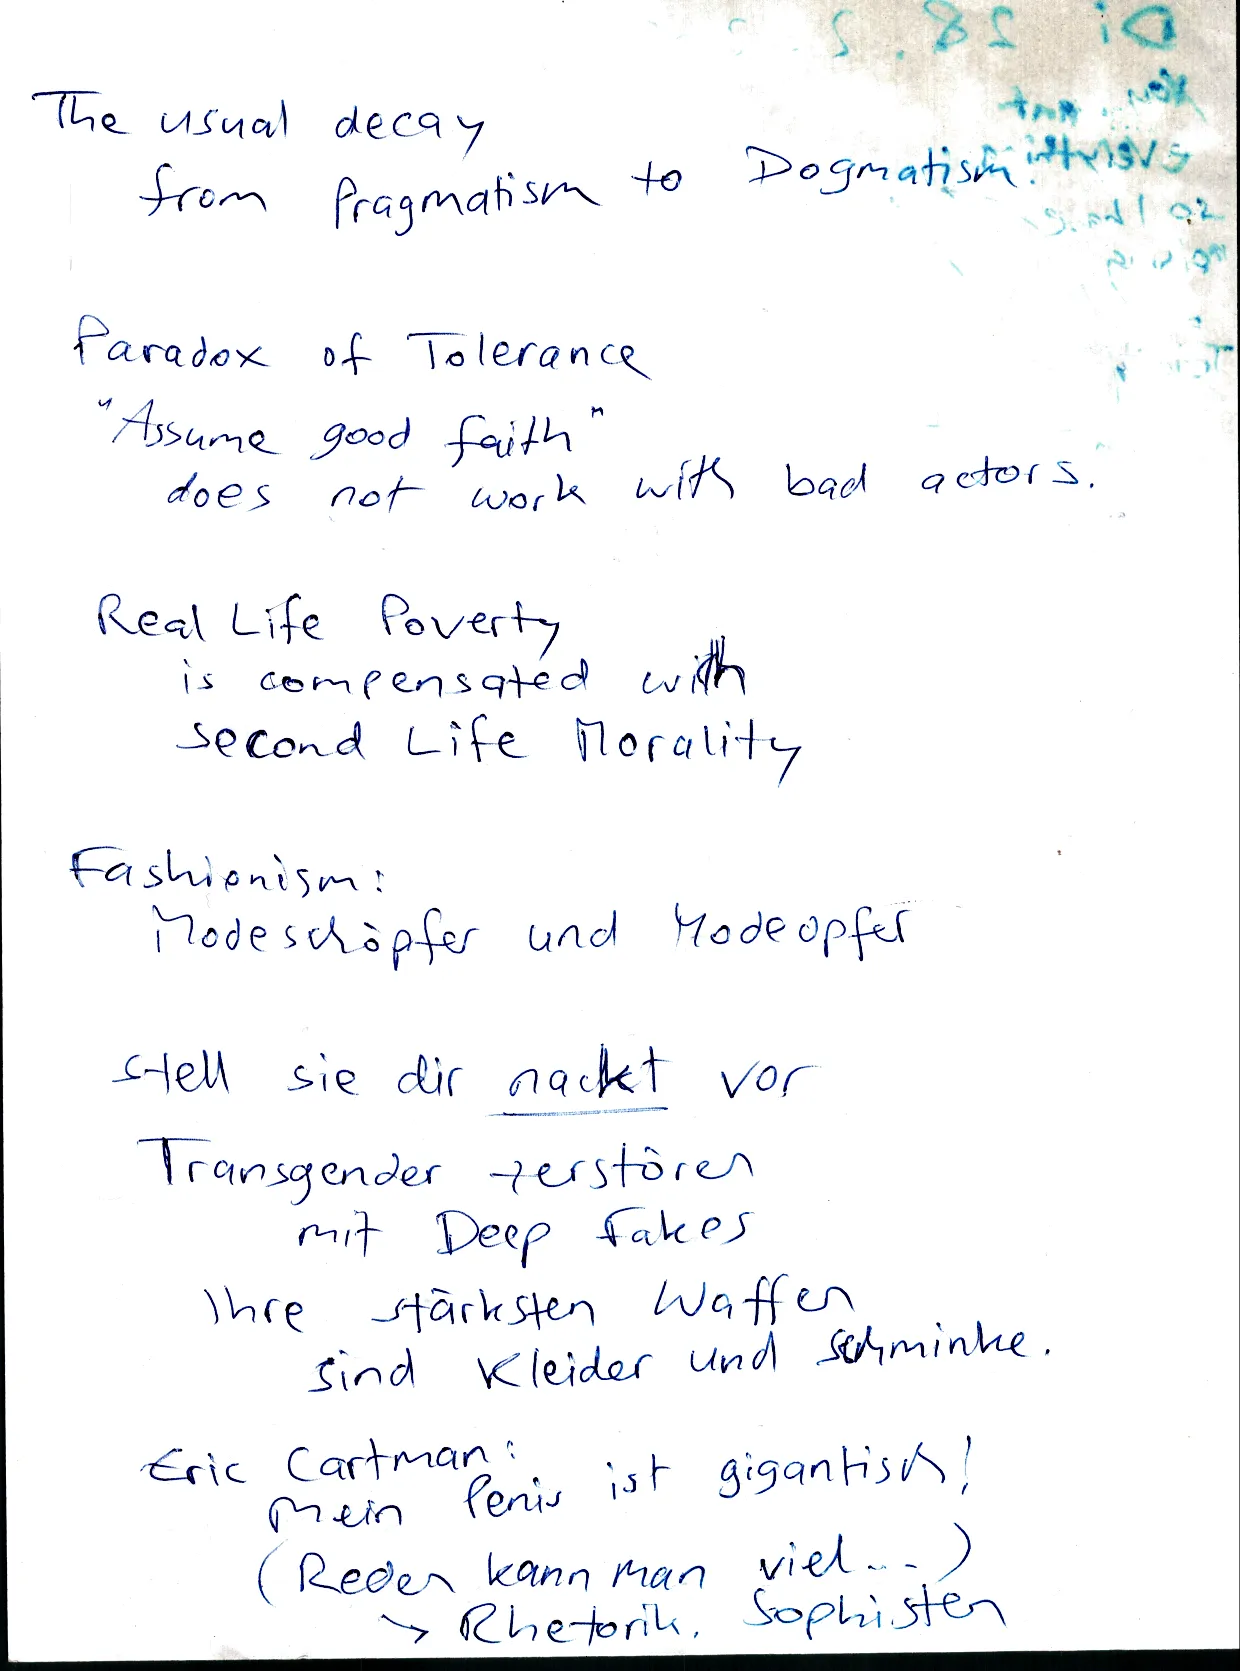 The usual decay
from Pragmatism to Dogmatism.
Paradox of Tolerance
"Assume good faith"
does not work with bad actors.
Real Life Poverty
is compensated with
second Life Morality
Fashionism:
Modeschöpfer und Modeopfer
stell sie dir nackt vor
Transgender zerstören
mit Deep Fakes
Ihre stärksten Waffen
sind Kleider und Schminke.
Eric Cartman:
Mein Penis ist gigantisch!
(Reden kann man viel...)
→ Rhetorik, Sophisten
Di 28.